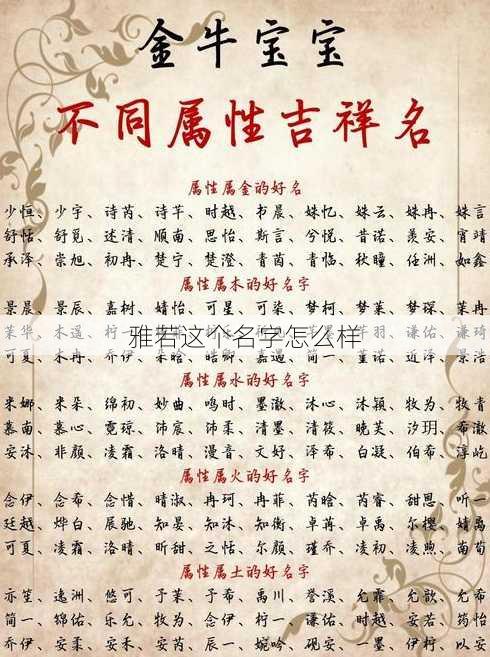 金牛宝宝
不同属性吉祥名
属性属金的好名
少恒、少宇、诗芮、诗芊、时越、书晨、姝忆、姝云、姝冉、姝言
舒恬、舒觅、述清、顺南、思怡、斯言、兮悦、昔诺、羡安、宵靖
承泽、崇旭、初冉、楚宁、楚澄、青茵、青临、秋瞳、任洲、如鑫
属性属木的好名字
景晨、景辰、嘉树、婧怡、可星、可柒、梦柯、梦莱、梦琛、茉冉
雅若这个名字怎么样
可夏、木冉、乔伊、朵晗、皓卿、嘉一、简一、堇诺、近泽、景浩
属性属水的好名字
米娜、米朵、绵初、妙曲、鸣时、墨澈、沐心、沐颖、牧为、牧青
慕南、慕心、霓琼、沛宸、沛柔、清墨、清筱、晓芙、汐玥、希澈
安沐、非颜、凌霜、洛晴、漫音、文妤、泽希、白凝、伯希、淳屹
属性属火的好名字
念伊、念希、念惜、晴淑、冉珂、冉菲、芮晗、芮睿、甜思、听一
廷越、烨白、辰驰、知晏、知沐、知衡、卓蒋、卓禹、尔樱、婧禹
可夏、凌霜、洛晴、昕甜、之恬、尔颜、瑾乔、凌初、凌煦、南荀
属性属土的好名字
亦笙、逸洲、悠可、于茉、于希、禹川、誉溪、允霏、允歆、允希
简一、锦佑、乐允、牧为、念伊、柠一、谦佑、时越、安若、筠怡
乔伊、安柔、安禾、安芮、辰一、婉吟、砚安、一墨、伊柯、以安